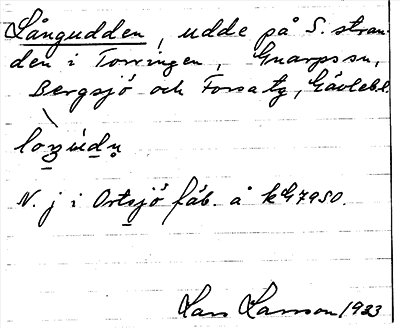 Långudden, udde på S. stran-
den i Torringen, Gnarpssn,
Bergsjö och Forsatg, Gävlebl.
N. j i Ortsjö fåb. å
Lars Larsson 1933